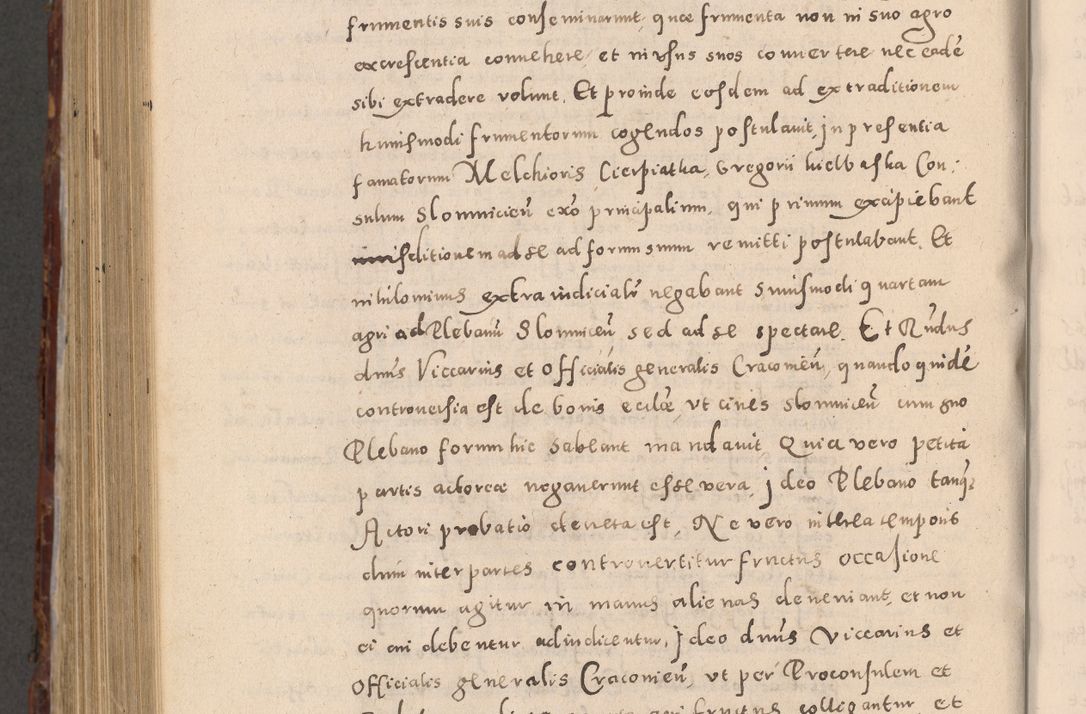 frumentis suis conseminarunt, quæ frumenta non in suo agro
excrescentia convehere, et in usus suos convertere nec eadē
sibi extradere volunt. Et proinde eosdem ad extraditionem
huiusmodi frumentorum cogendos postulavit, in presentia
famatorum Melchioris Cierpiatka, Gregorii kielbaska Con:
sulum Slomnicieñ exõ principalium, qui primum excipiebant
iurisditionem ad se ad forum suum remitti postulabant. Et
nihilominus extraiudicialr negabant huiusmodi quartam
agri ad Plebanū Slomniceñ sed ad se spectare. Et Rndus
dnus Viccarius et Officialis generalis Cracovieñ, quandoquidē
controversia est de bonis eccliæ, ut cives Slomniceñ cum gno
Plebano forum hic habeant mandavit. Quia vero petita
partis actoreæ negaverunt esse vera, ideo Plebano tanq̃
Actori probatio decreta est. Ne vero interea temporis
dum inter partes controvertitur fructus occasione
quorum agitur in manus alienas deveniant, et non
ei cui debentur adiudicentur, ideo dnus Viccarius et
Officialis generalis Cracovieñ ut per Proconsulem et
agri fructus colligantur et